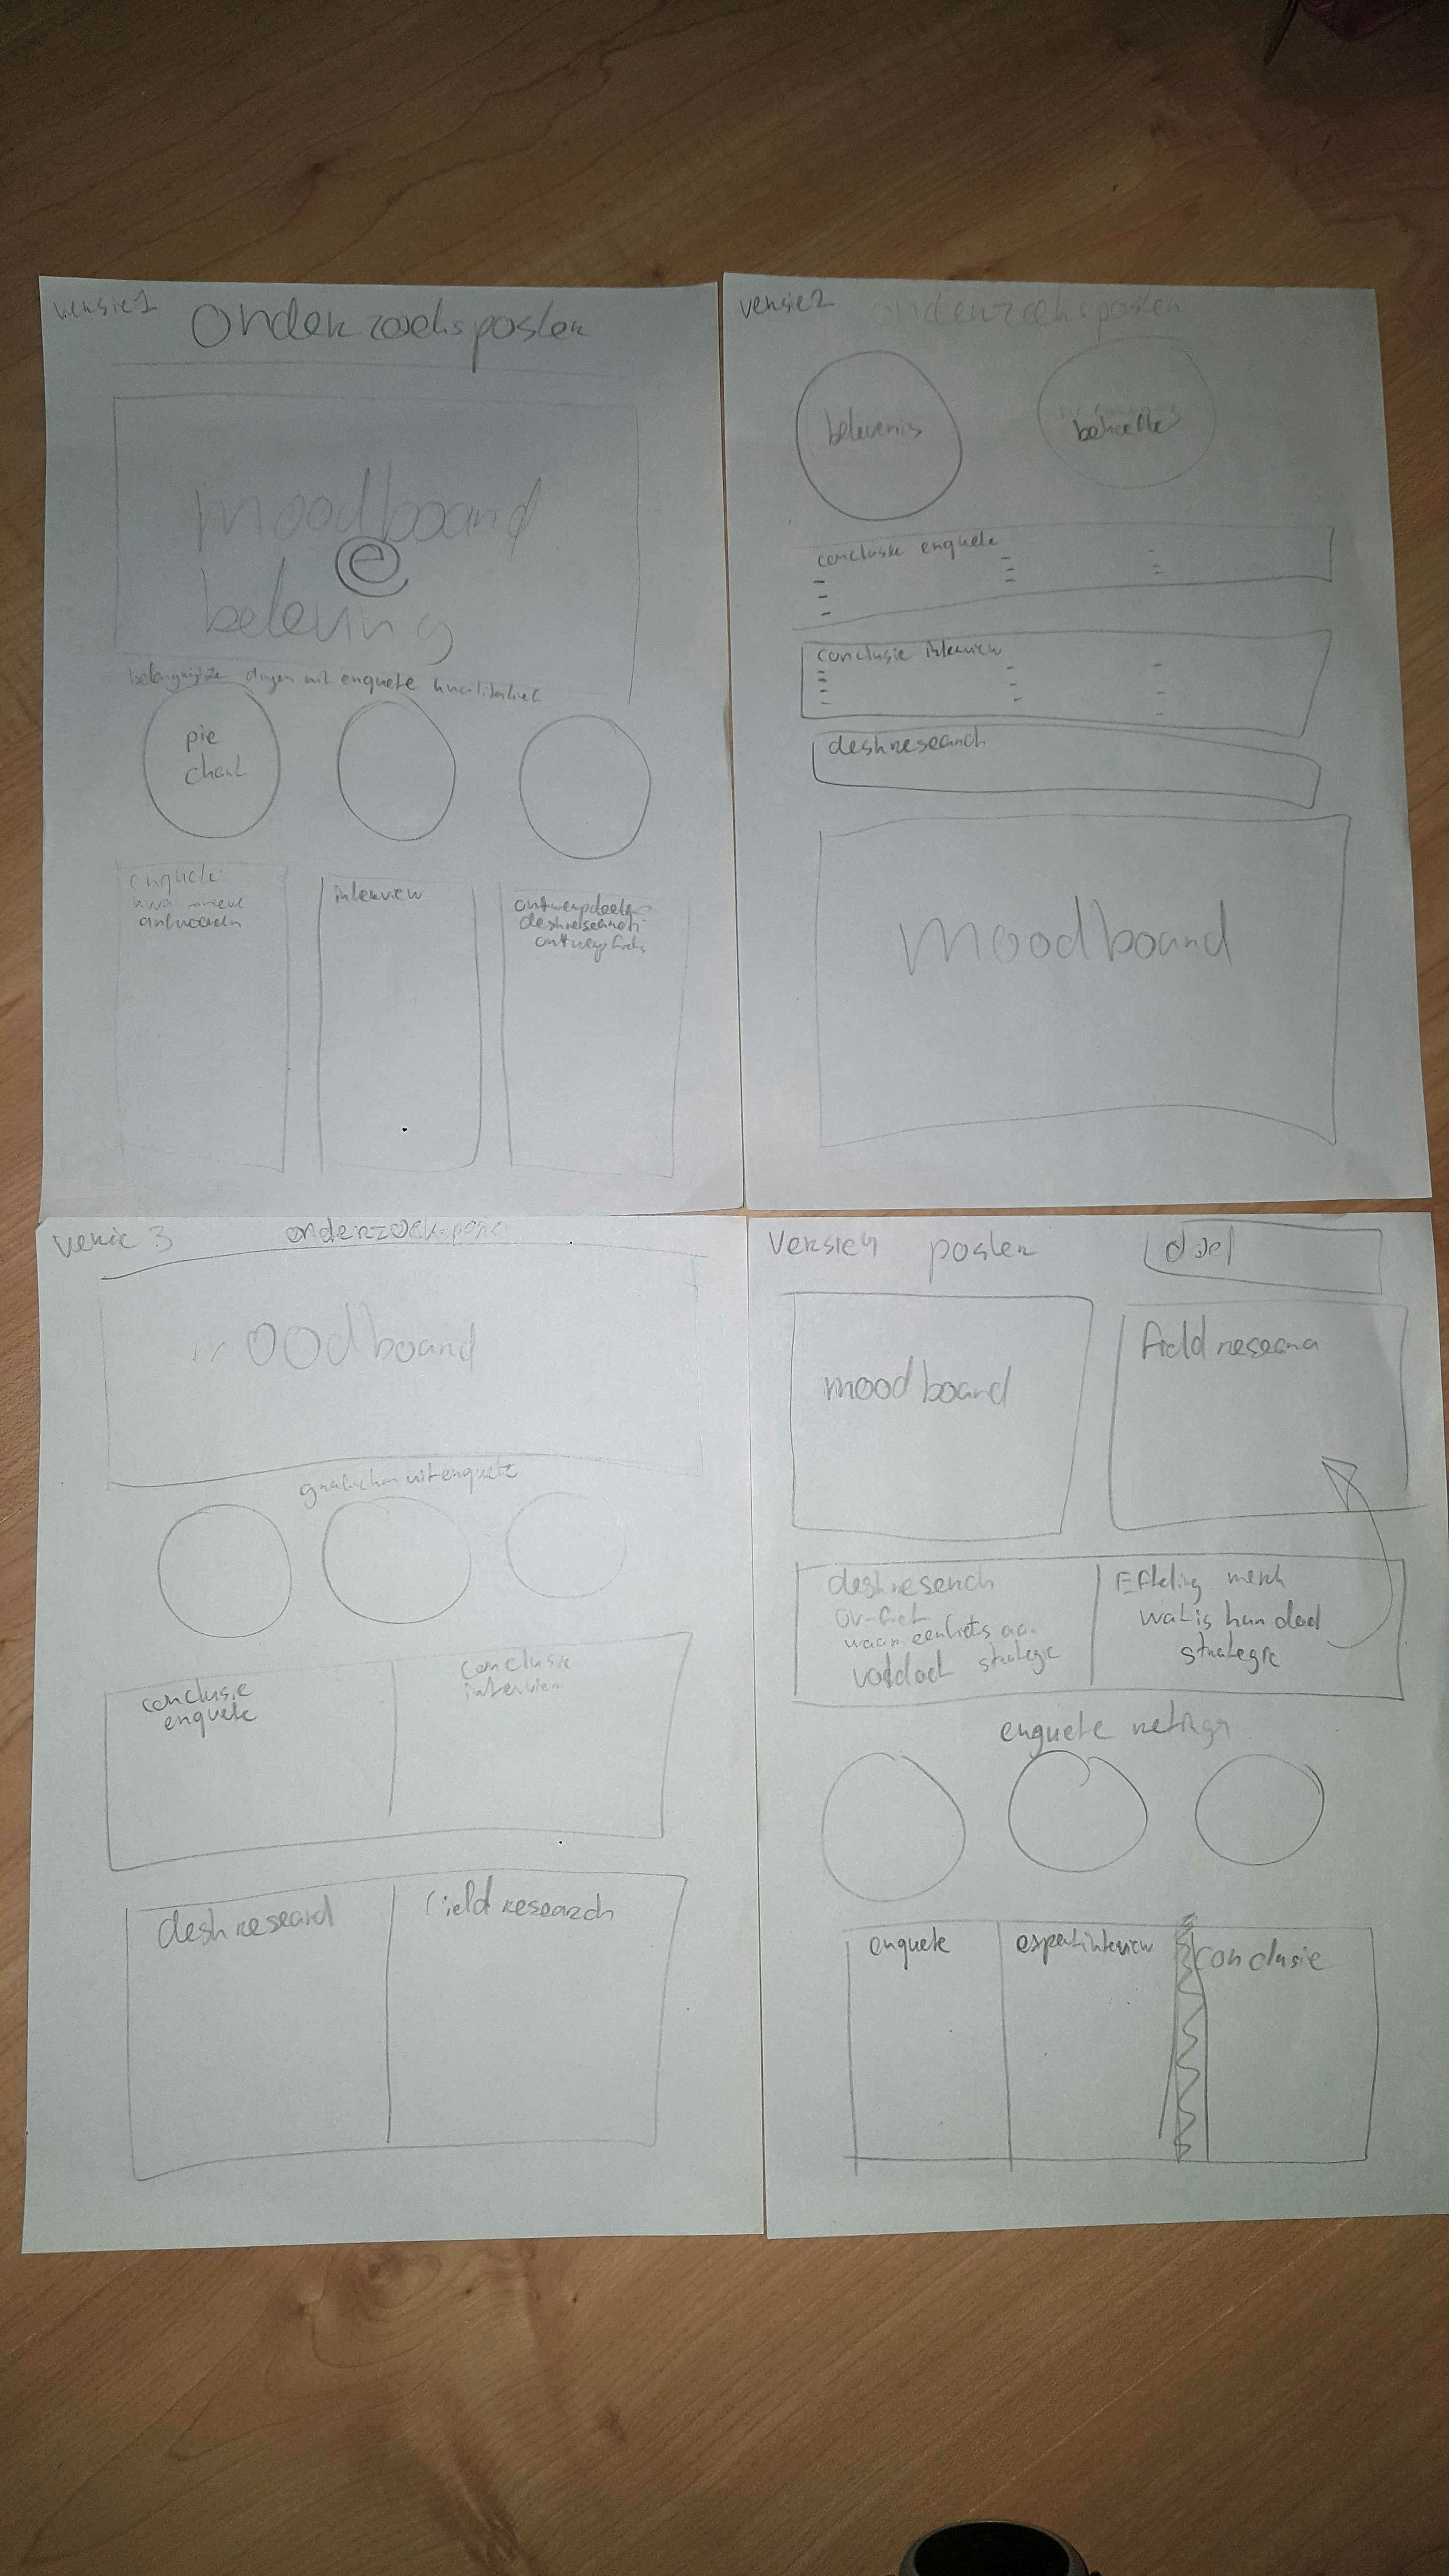 versie 1
onderzoeksposter
moodboard
e
beleving
belangrijkste dingen uit enquete kwalitatief
pie
chart
enquete
antwoorden
interview
ontwerpdoelen
deskresearch
versie 2
onderzoeksposter
belevenis
behoeftes
conclusie enquete
conclusie interview
deskresearch
moodboard
versie 3
onderzoeksposter
moodboard
grafieken uit enquete
conclusie
enquete
conclusie
interview
deskresearch
field research
versie 4 poster
doel
moodboard
field research
deskresearch
ov-fiets
strategie
Efteling merch
wat is hun doel
strategie
enquete
enquete
expertinterview
conclusie